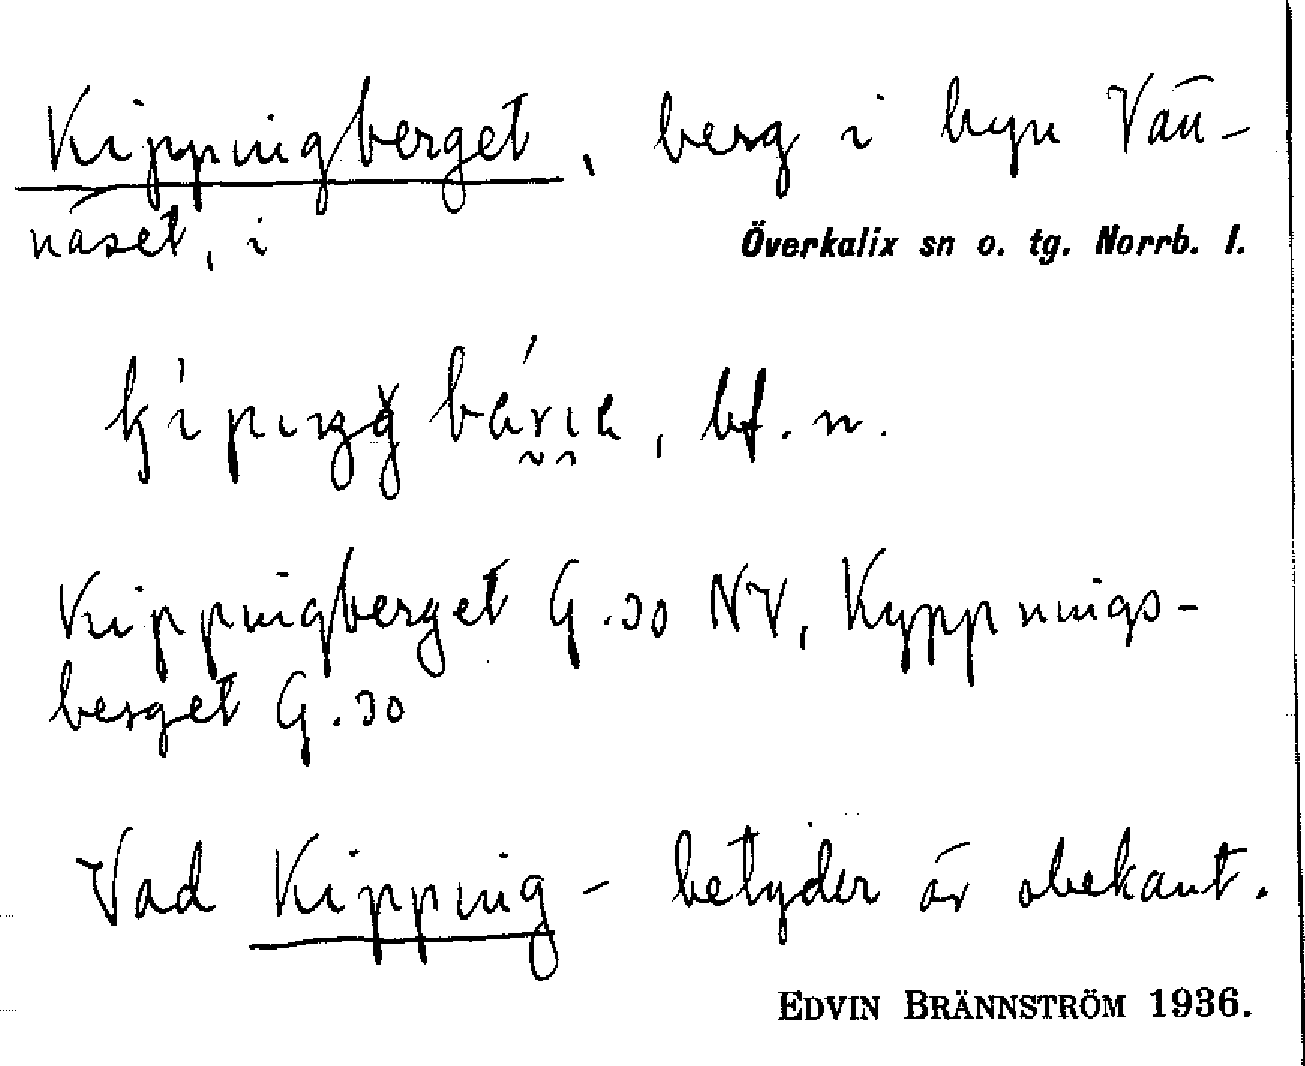 Kippingberget, berg i byn Vän-
näset, i Överkalix sn o. tg. Norrb. l.
bf. n.
Kippingberget G.30 NV, Kyppnings-
berget G.30
Vad Kipping- betyder är obekant.
EDVIN BRÄNNSTRÖM 1936.